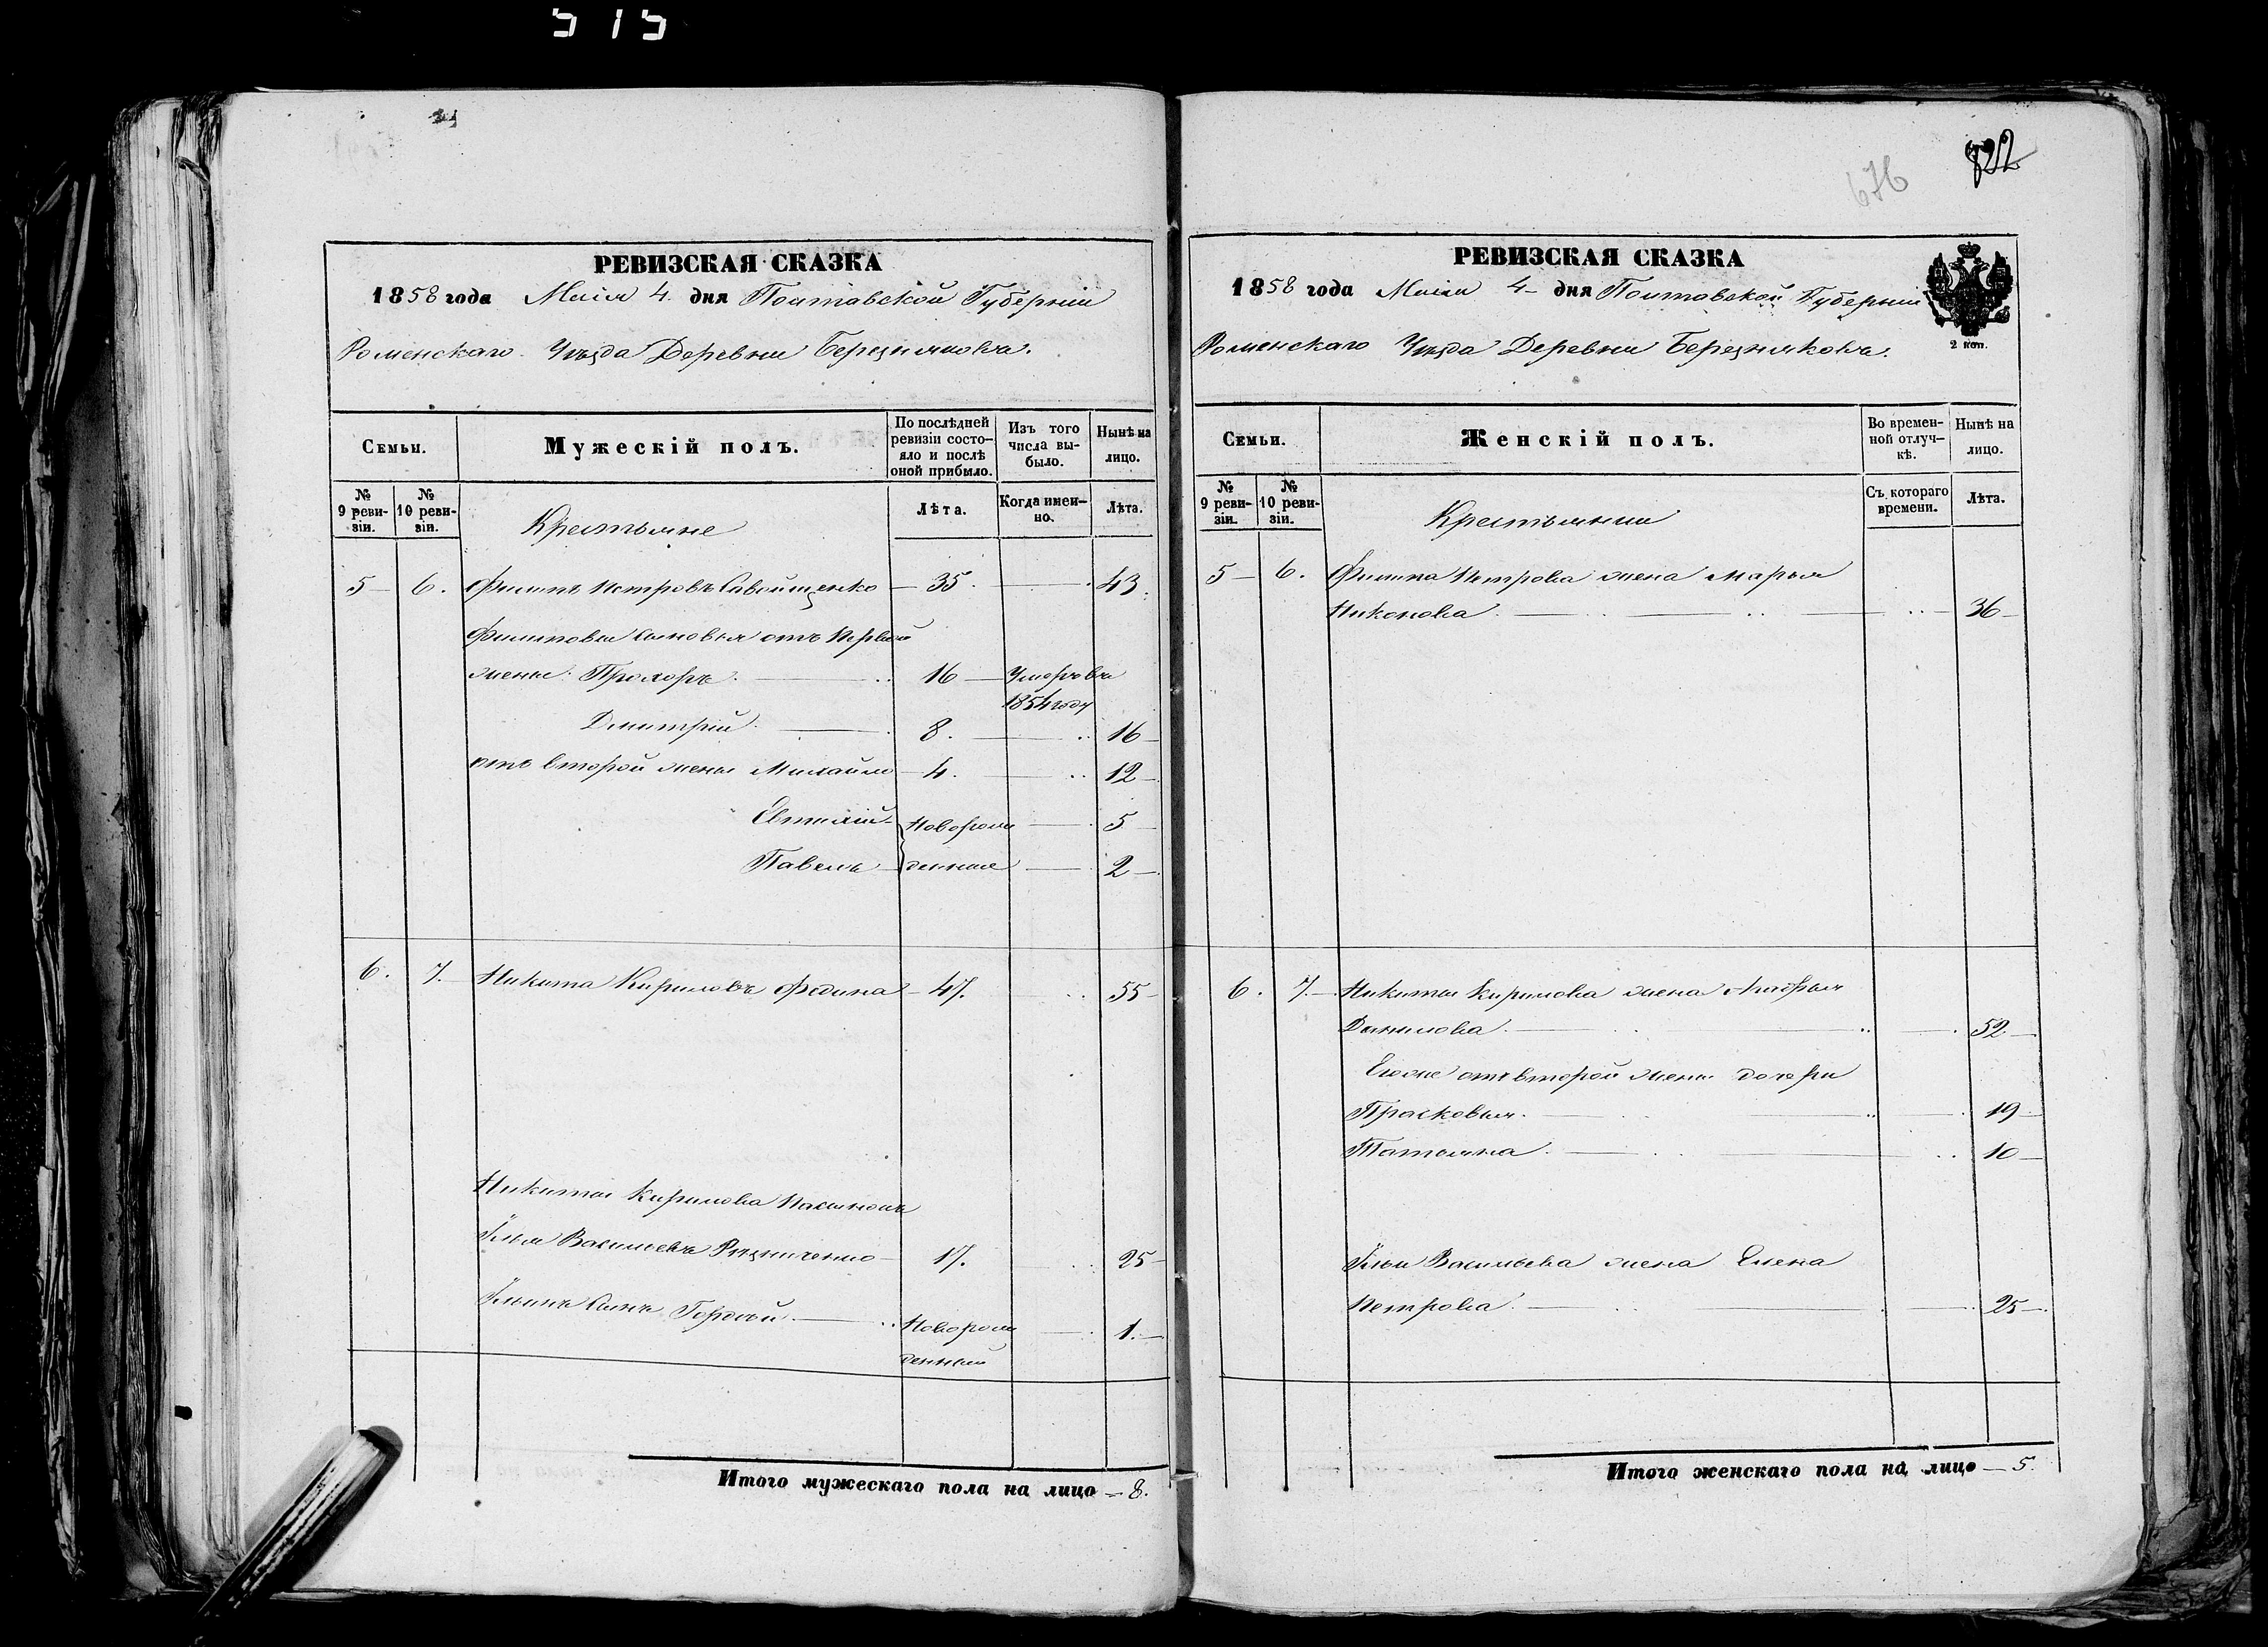 515
676
РЕВИЗСКАЯ СКАЗКА
1858 года Маія 4 дня Полтавской Губерніи
Роменскаго Уѣзда Деревни Березнякова.
Семьи.
Мужескій полъ.
По послѣдней ревизіи состояло и послѣ оной прибыло.
Изъ того числа выбыло.
Нынѣ на лицо.
№ 9 ревизіи.
№ 10 ревизіи.
Крестьяне
Лѣта.
Когда именно.
Лѣта.
5 6. Филипъ Петровъ 35. 43.
Филиповы сыновья отъ первой
жены: Прохоръ 16 Умеръ въ
1854 году
Дмитрій 8. 16
отъ второй жены Михайло 4. 12
Евтихій Новорож 5
Павелъ денные 2
6. 7. Никита Кириловъ Федина 47. 55
Никиты Кирилова пасынокъ
Илья Васильевъ Резниченко 17. 25
Ильинъ сынъ Гордѣй Новорож 1.
денный
Итого мужескаго пола на лицо 8.
РЕВИЗСКАЯ СКАЗКА
1858 года Маія 4 дня Полтавской Губерніи
2 коп.
Роменскаго Уѣзда Деревни Березнякова.
Семьи.
Женскій полъ.
Во временной отлучкѣ.
Нынѣ на лицо.
№ 9 ревизіи.
№ 10 ревизіи.
Крестьянки
Съ котораго времени.
Лѣта.
5 6. Филипа Петрова жена Марья
Никонова 36
6. 7. Никиты Кирилова жена
Данилова 52
Егоже отъ второй жены дочери
Прасковья 19
Татьяна 10
Ильи Васильева жена Елена
Петрова 25
Итого женскаго пола на лицо 5.